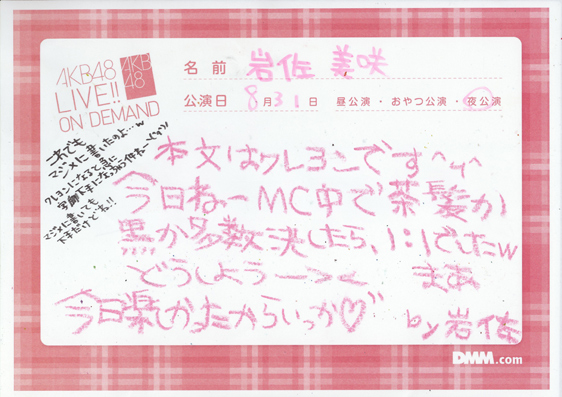 AKB48
LIVE!!
ON DEMAND
AKB
48
名前 岩佐美咲
公演日 8月31日 昼公演・おやつ公演・夜公演
これでも
マジメに書いたのよ…w
クレヨンになると急に
マジメに書いても
下手だけどね!!
本文はクレヨンです^_^
今日ねーMC中で茶髪か
黒か多数決したら、1:1でしたw
どうしよう まあ
今日楽しかったからいっか♡
岩佐
DMM.com